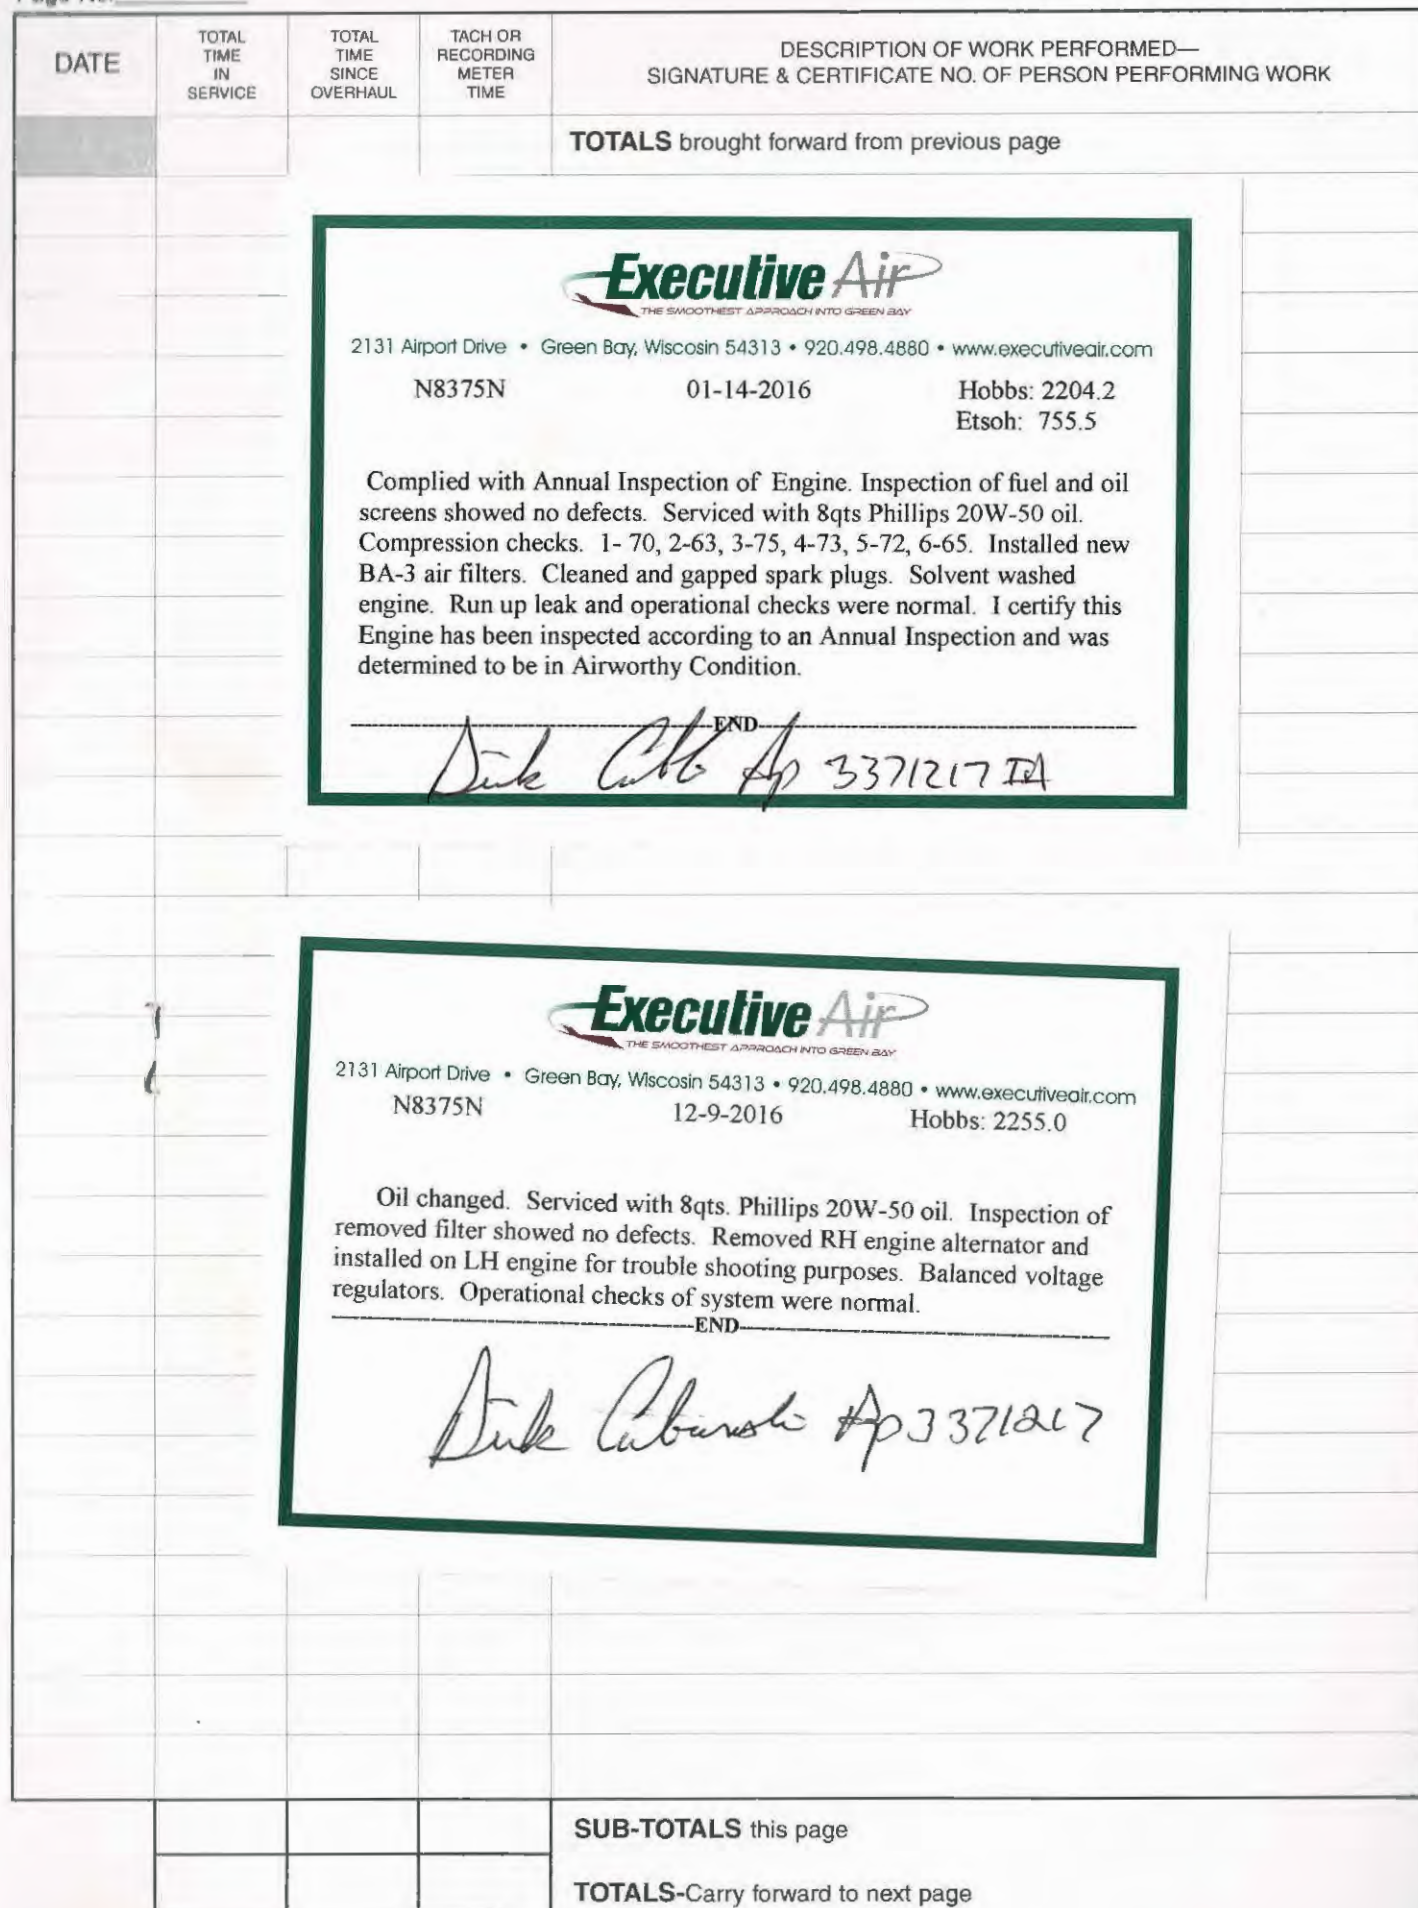 Page No.
DATE
TOTAL TIME IN SERVICE
TOTAL TIME SINCE OVERHAUL
TACH OR RECORDING METER TIME
DESCRIPTION OF WORK PERFORMED—
SIGNATURE & CERTIFICATE NO. OF PERSON PERFORMING WORK
TOTALS brought forward from previous page
Executive Air
THE SMOOTHEST APPROACH INTO GREEN BAY
2131 Airport Drive • Green Bay, Wiscosin 54313 • 920.498.4880 • www.executiveair.com
N8375N 01-14-2016 Hobbs: 2204.2
Etsoh: 755.5
Complied with Annual Inspection of Engine. Inspection of fuel and oil
screens showed no defects. Serviced with 8qts Phillips 20W-50 oil.
Compression checks. 1- 70, 2-63, 3-75, 4-73, 5-72, 6-65. Installed new
BA-3 air filters. Cleaned and gapped spark plugs. Solvent washed
engine. Run up leak and operational checks were normal. I certify this
Engine has been inspected according to an Annual Inspection and was
determined to be in Airworthy Condition.
END
Dick Ap 3371217 IA
Executive Air
THE SMOOTHEST APPROACH INTO GREEN BAY
2131 Airport Drive • Green Bay, Wiscosin 54313 • 920.498.4880 • www.executiveair.com
N8375N 12-9-2016 Hobbs: 2255.0
Oil changed. Serviced with 8qts. Phillips 20W-50 oil. Inspection of
removed filter showed no defects. Removed RH engine alternator and
installed on LH engine for trouble shooting purposes. Balanced voltage
regulators. Operational checks of system were normal.
END
Dick Ap 3371217
SUB-TOTALS this page
TOTALS-Carry forward to next page